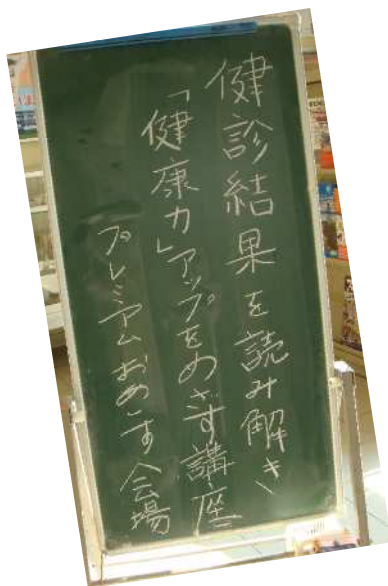 健診結果を読み解き、
「健康力」アップをめざす講座
プレミアムおめこす会場